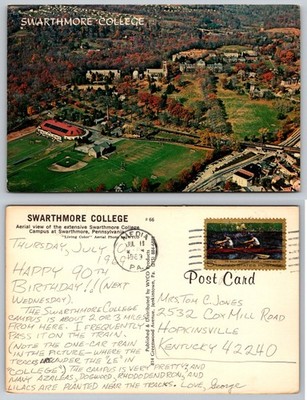 SWARTHMORE COLLEGE
SWARTHMORE COLLEGE
Aerial view of the extensive Swarthmore College
Campus at Swarthmore, Pennsylvania
"Living Color" Aerial
THURSDAY, JULY
19
HAPPY 90TH
BIRTHDAY!! (NEXT
WEDNESDAY)
THE SWARTHMORE COLLEGE
CAMPUS IS ABOUT 2 OR 3 MILES
FROM HERE. I FREQUENTLY
PASS IT ON THE TRAIN.
(NOTE THE ONE-CAR TRAIN
IN THE PICTURE—WHERE THE
TRACKS UNDER THE "LE" IN
"COLLEGE") THE CAMPUS IS VERY PRETTY, AND
MANY AZALEAS, DOGWOOD, RHODODENDRON, AND
LILACS ARE PLANTED NEAR THE TRACKS. LOVE, George
MEDIA
JUL 11
PA
Post Card
MRS. TOM C. JONES
2532 COX MILL ROAD
HOPKINSVILLE
KENTUCKY 42240